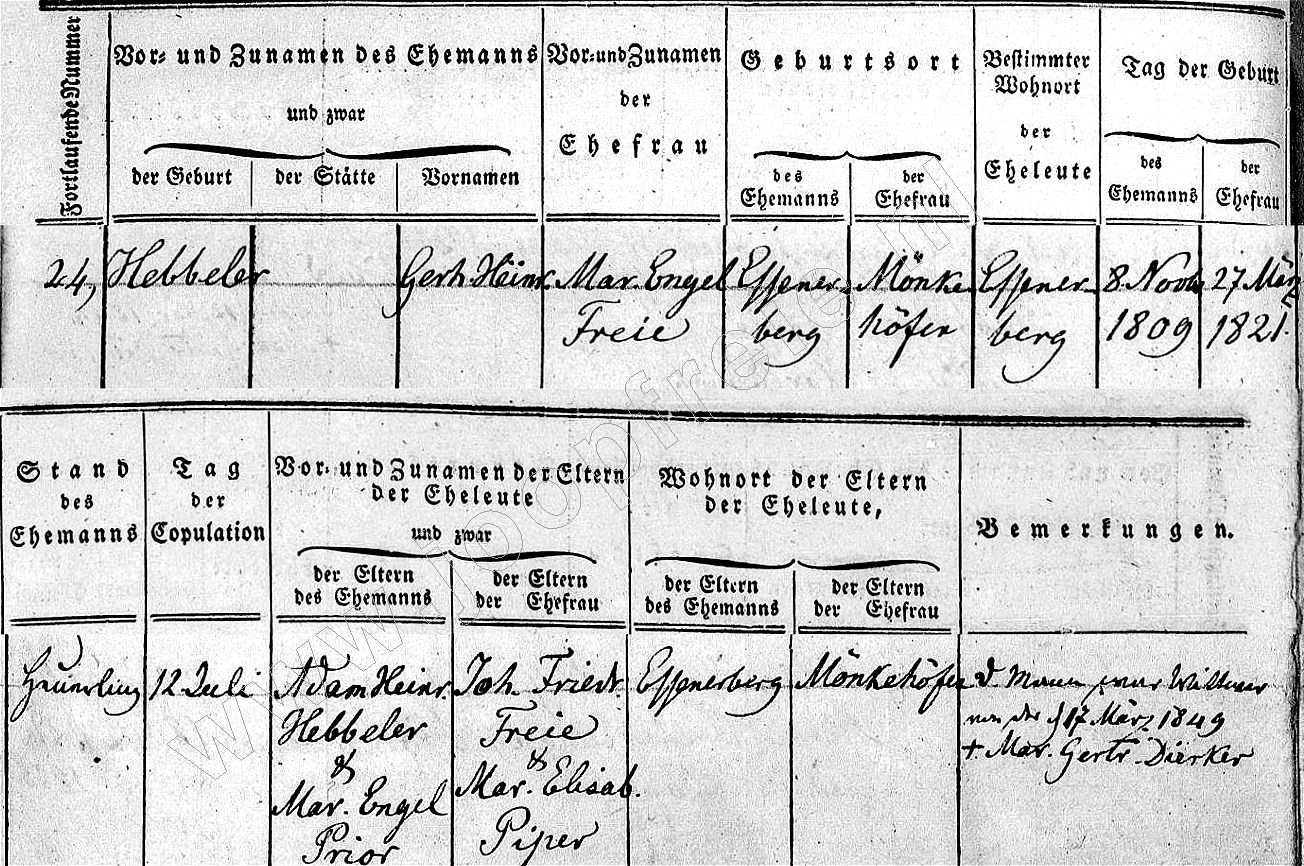 Fortlaufende Nummer
Vor- und Zunamen des Ehemanns
und zwar
der Geburt
der Stätte
Vornamen
Vor- und Zunamen
der
Ehefrau
Geburtsort
des
Ehemanns
der
Ehefrau
Bestimmter
Wohnort
der
Eheleute
Tag der Geburt
des
Ehemanns
der
Ehefrau
24,
Hebbeler
Gerh. Heinr.
Mar. Engel
Freie
Essener-
berg
Mönke
höfen
Essener-
berg
8 Novb
1809
27 März
1821.
Stand
des
Ehemanns
Tag
der
Copulation
Vor- und Zunamen der Eltern
der Eheleute
und zwar
der Eltern
des Ehemanns
der Eltern
der Ehefrau
Wohnort der Eltern
der Eheleute,
der Eltern
des Ehemanns
der Eltern
der Ehefrau
Bemerkungen.
Heuerling
12 Juli
Adam Heinr.
Hebbeler
&
Mar. Engel
Prior
Joh. Friedr.
Freie
&
Mar. Elisab.
Piper
Essenerberg
Mönkehöfen
d Mann war Wittwer
von der d 17 März 1849
+ Mar. Gertr. Dierker
www.joopfreie.nl